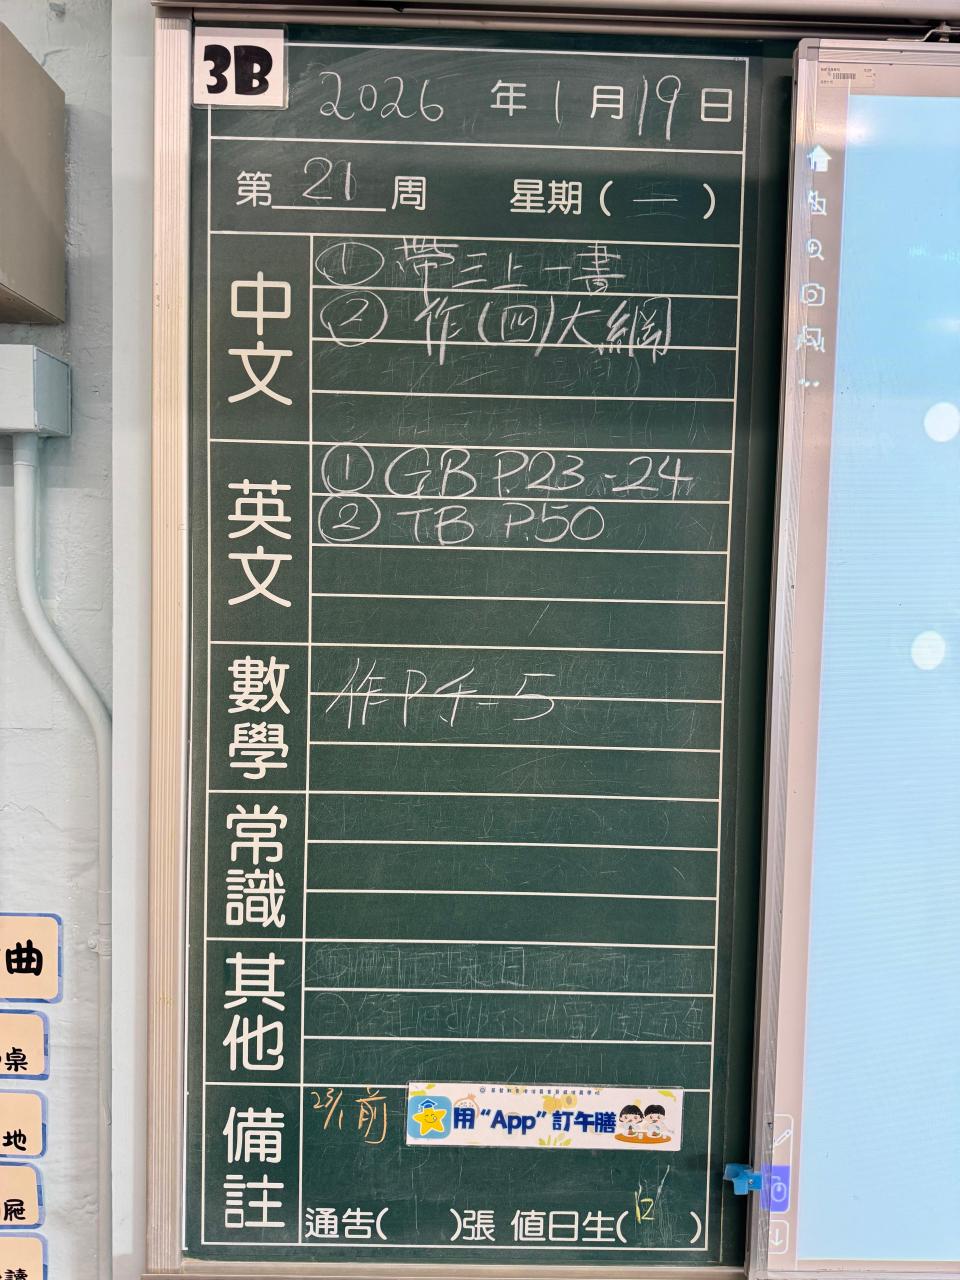 3B
2026 年 1 月 19 日
第 21 周 星期 ( 一 )
中文
① 帶三上一書
② 作(四)大綱
英文
① GB P.23-24
② TB P.50
數學
作P.
常識
其他
備註
23/1 前
用 “App” 訂午膳
通告( )張 值日生( 12 )
曲
桌
地
屐
讀